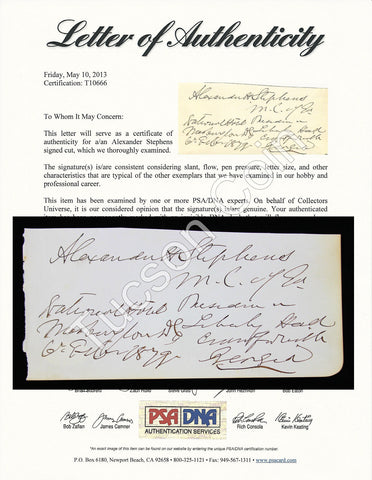 Letter of Authenticity
Friday, May 10, 2013
Certification: T10666
To Whom It May Concern:
This letter will serve as a certificate of
authenticity for a/an Alexander Stephens
signed cut, which we thoroughly examined.
Alexander H Stephens
M. C. of Ga
National Hotel
Washington DC Liberty Hall
6th Feb 1879
The signature(s) is/are consistent considering slant, flow, pen pressure, letter size, and other
characteristics that are typical of the other exemplars that we have examined in our hobby and
professional career.
This item has been examined by one or more PSA/DNA experts. On behalf of Collectors
Universe, it is our considered opinion that the signature(s) is/are genuine. Your authenticated
Alexander H Stephens
M. C. of Ga
National Hotel
Washington DC Liberty Hall
6th Feb 1879 Crawfordville
Georgia
Tucson
Bob Eaton
Bob Zafian
James Camner
PSA DNA
AUTHENTICATION SERVICES
Rich Consola
Kevin Keating
*An exact image of this item can be found on our website by entering the unique PSA/DNA certification number.
P.O. Box 6180, Newport Beach, CA 92658 • 800-325-1121 • Fax: 949-567-1311 • www.psacard.com